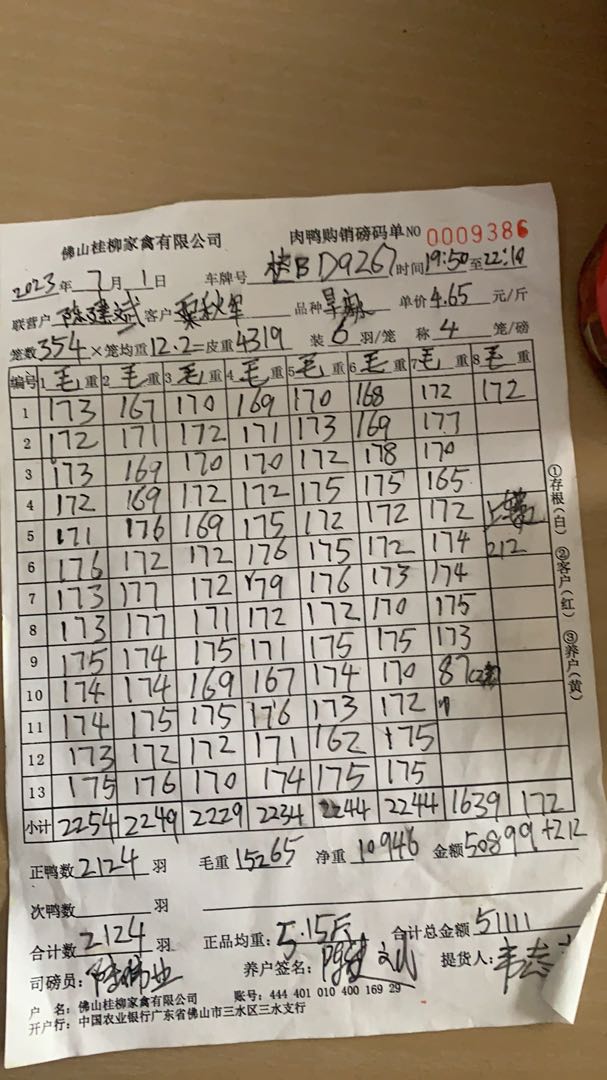 佛山桂柳家禽有限公司 肉鸭购销磅码单 NO 0009386
2023年7月1日 车牌号 桂BD9267 时间19:50至22:10
联营户 陈建斌 客户 覃秋军 品种 单价4.65元/斤
笼数354×笼均重12.2=皮重4319 装6羽/笼 称4笼/磅
编号 1毛重 2毛重 3毛重 4毛重 5毛重 6毛重 7毛重 8毛重
1 173 167 170 169 170 168 172 172
2 172 171 172 171 173 169 177
3 173 169 170 170 172 178 170
4 172 169 172 172 175 175 165
5 171 176 169 175 172 172 172
6 176 172 172 176 175 172 174 212
7 173 177 172 179 176 173 174
8 173 177 171 172 172 170 175
9 175 174 175 171 175 175 173
10 174 174 169 167 174 170 87
11 174 175 175 176 173 172
12 173 172 172 171 162 175
13 175 176 170 174 175 175
小计 2254 2249 2229 2234 2244 2244 1639 172
正鸭数2124羽 毛重15265 净重10946 金额50899+212
次鸭数 羽
合计数2124羽 正品均重:5.15斤 合计总金额51111
司磅员: 养户签名: 提货人:
户 名:佛山桂柳家禽有限公司 账号:444 401 010 400 169 29
开户行:中国农业银行广东省佛山市三水区三水支行
①存根(白) ②客户(红) ③养户(黄)